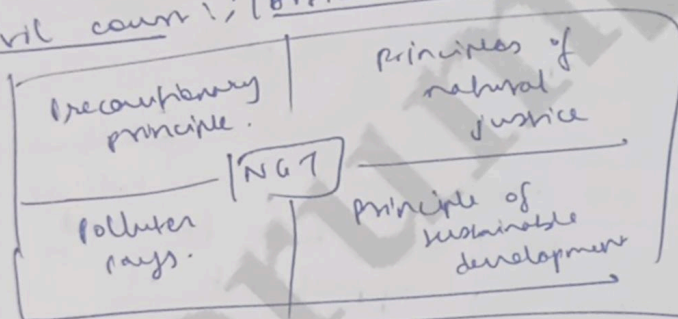 civil court
Precautionary
principle.
principles of
natural
justice
NGT
Polluter
pays.
principle of
sustainable
development